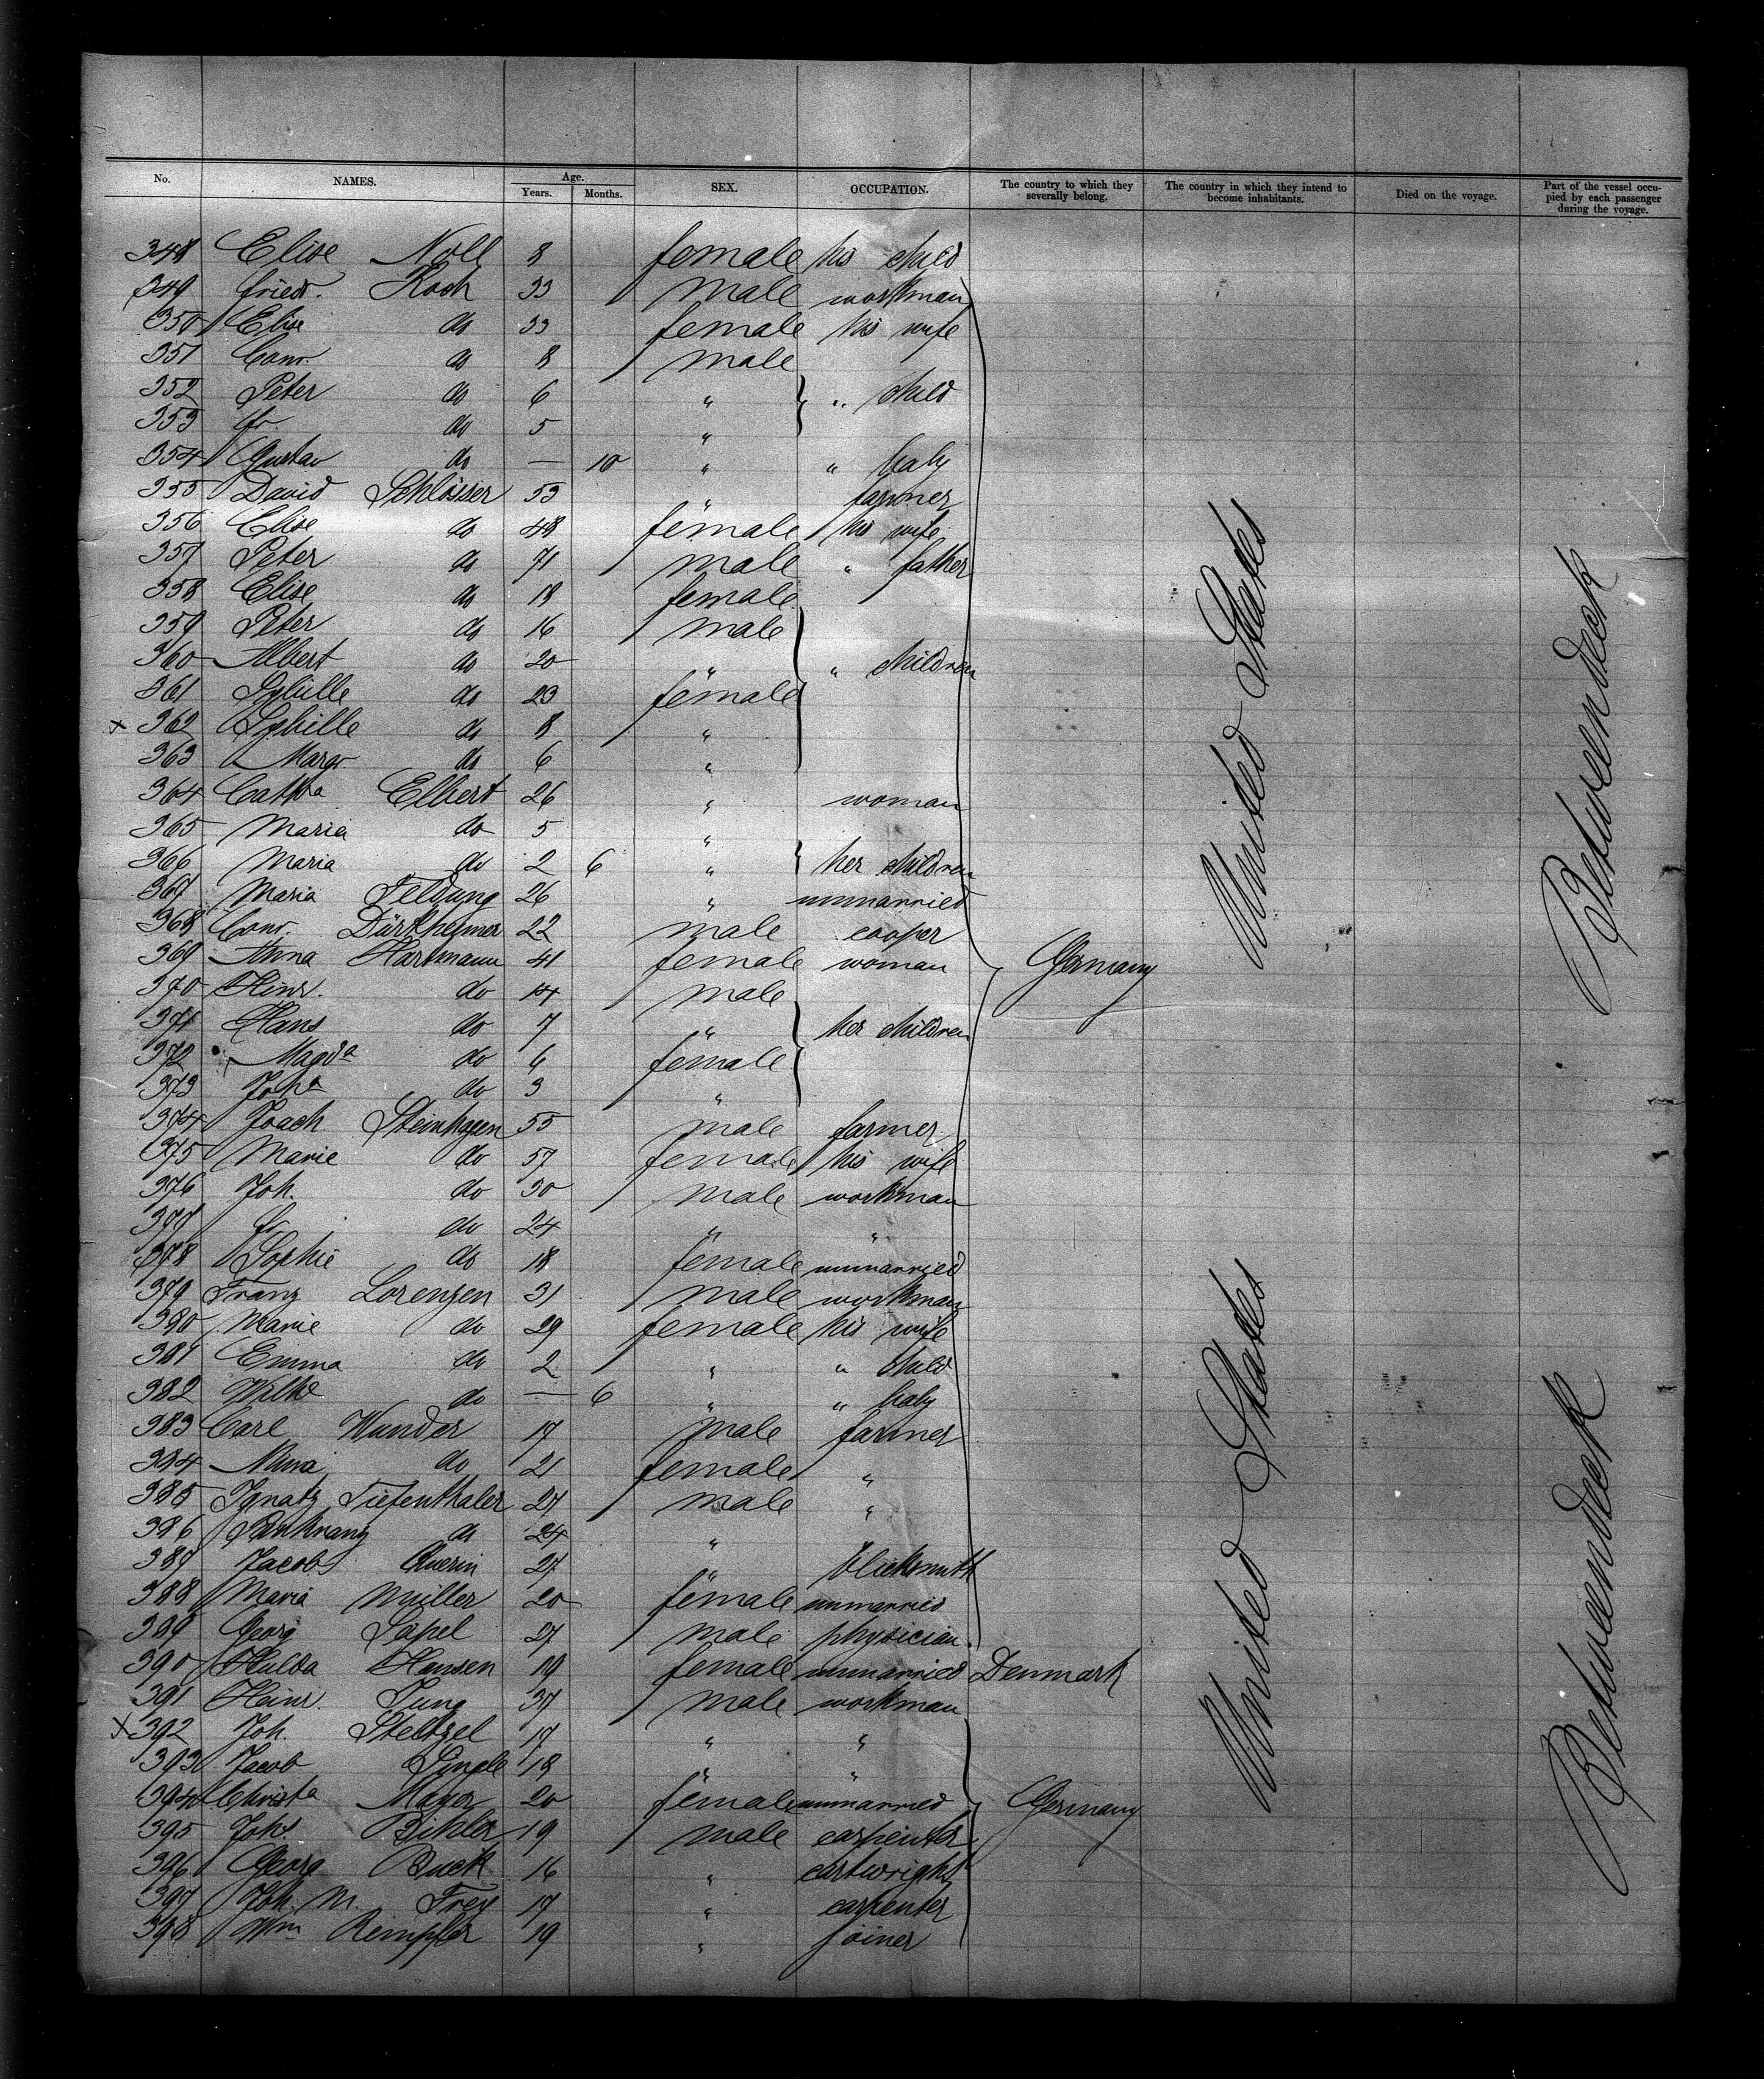 No. NAMES. Age. Years. Months. SEX. OCCUPATION. The country to which they severally belong. The country in which they intend to become inhabitants. Died on the voyage. Part of the vessel occupied by each passenger during the voyage.
348 Elise Noll 8 female his child
349 Friedr. Koch 33 male workman
350 Elise do 33 female his wife
351 Conr. do 8 male
352 Peter do 6 " " child
353 Fr do 5 "
354 Gustav do — 10 " " baby
355 David Schlösser 53 " farmer
356 Elise do 48 female his wife
357 Peter do 71 male " father
358 Elise do 18 female
359 Peter do 16 male
360 Albert do 20 " " children
361 Sybille do 23 female
x 362 Sybille do 8 "
363 Margr. do 6 "
364 Catha Elbert 26 " woman
365 Maria do 5 "
366 Maria do 2 6 " her children
367 Maria Feldung 26 " unmarried
368 Conr. Dürkheimer 22 male cooper
369 Anna Hartmann 41 female woman Germany
370 Hinr. do 14 male
371 Hans do 7 " her children
372 Magda do 6 female
373 Joha do 3 "
374 Joach Steinhagen 55 male farmer
375 Marie do 57 female his wife
376 Joh. do 30 male workman
377 Fr do 24 " "
378 Sophie do 18 female unmarried
379 Franz Lorenzen 31 male workman
380 Marie do 29 female his wife
381 Emma do 2 " " child
382 Wilhe do — 6 " " baby
383 Carl Wunder 17 male farmer
384 Mina do 21 female "
385 Ignatz Tiefenthaler 27 male "
386 Pankranz do 24 "
387 Jacob Querin 27 " blicksmith
388 Maria Müller 20 female unmarried
389 Georg Sapel 27 male physician
390 Hulda Hansen 19 female unmarried Denmark
391 Heinr. Jung 37 male workman
x 392 Joh. Steltzel 17 " "
393 Jacob Single 18 " "
394 Christa Mayer 20 female unmarried Germany
395 Johs. Bihler 19 male carpenter
396 Georg Buck 16 " cartwright
397 Joh. M. Frey 17 " carpenter
398 Wm Rempfer 19 " joiner
United States
Betweendeck
United States
Betweendeck